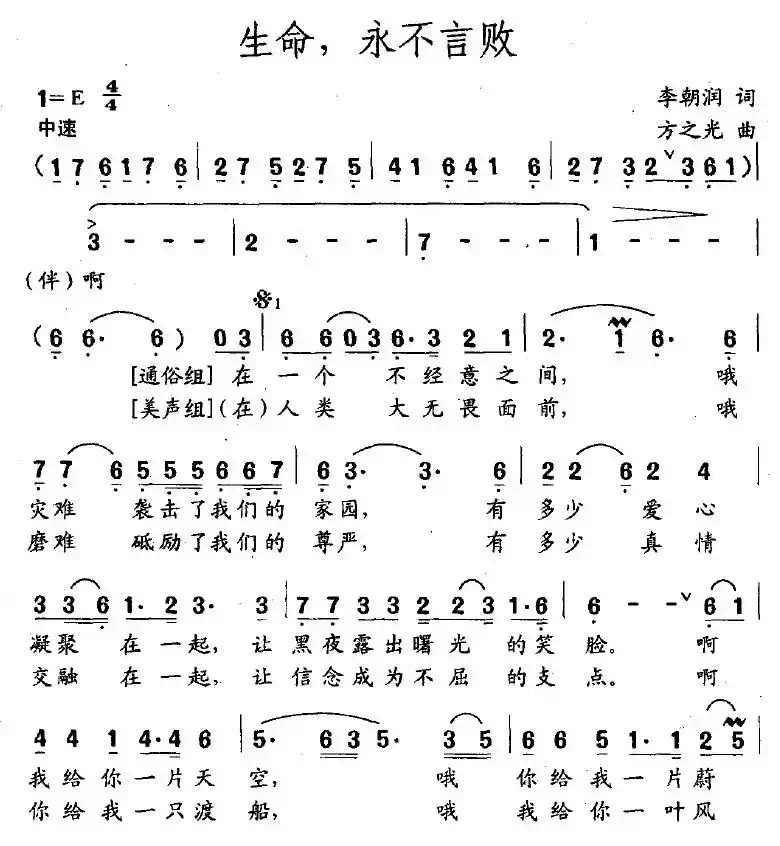 生命，永不言败
1=E 4/4
李朝润 词
中速
方之光 曲
(1 7 6 1 7 6 | 2 7 5 2 7 5 | 4 1 6 4 1 6 | 2 7 3 2 ∨ 3 6 1) |
3 - - - | 2 - - - | 7 - - - | 1 - - - |
(伴)啊
𝄋1
(6 6· 6) 0 3 | 6 6 0 3 6· 3 2 1 | 2· 1 6· 6 |
[通俗组] 在 一 个 不 经 意 之 间， 哦
[美声组] (在) 人 类 大 无 畏 面 前， 哦
7 7 6 5 5 5 6 6 7 | 6 3· 3· 6 | 2 2 6 2 4 |
灾难 袭击了我们的 家园， 有 多少 爱 心
磨难 砥励了我们的 尊严， 有 多少 真 情
3 3 6 1· 2 3· 3 | 7 7 3 3 2 2 3 1· 6 | 6 - - ∨ 6 1 |
凝聚 在 一起，让 黑夜露出曙光 的笑 脸。 啊
交融 在 一起，让 信念成为不屈 的支 点。 啊
4 4 1 4· 4 6 | 5· 6 3 5· 3 5 | 6 6 5 1· 1 2 5 |
我 给 你 一 片 天 空， 哦 你 给 我 一 片 蔚
你 给 我 一 只 渡 船， 哦 我 给 你 一 叶 风